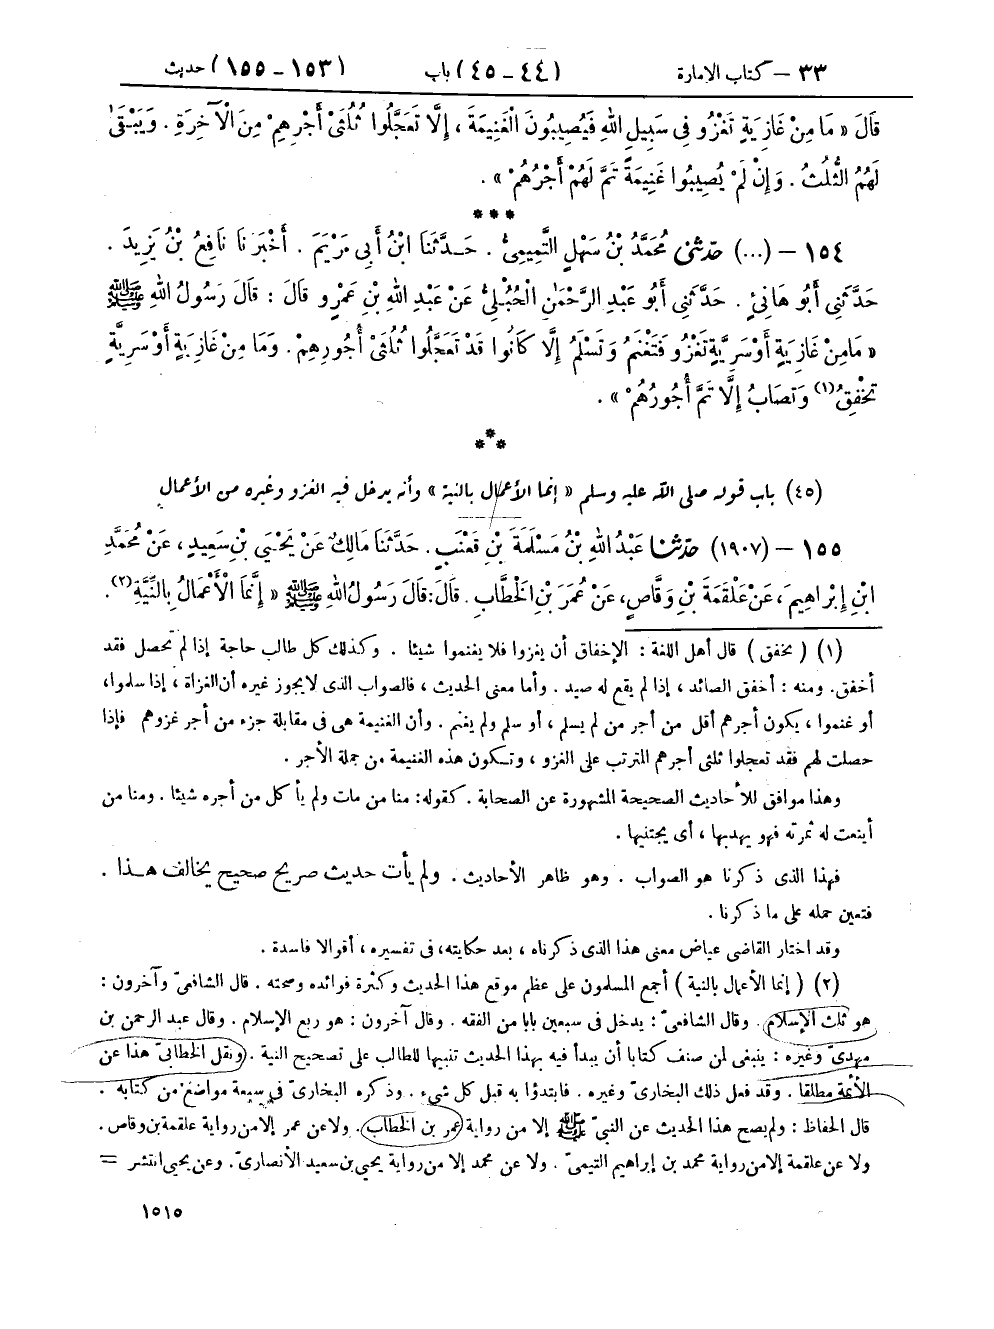 ٣٣ – كتاب الامارة (٤٤ – ٤٥) باب (١٥٣ – ١٥٥) حديث
قَالَ « مَا مِنْ غَازِيَةٍ تَغْزُو فِى سَبِيلِ اللهِ فَيُصِيبُونَ الْغَنِيمَةَ ، إِلَّا تَعَجَّلُوا ثُلُثَىْ أَجْرِهِمْ مِنَ الْآخِرَةِ . وَيَبْقَىٰ
لَهُمُ الثُّلُثُ . وَإِنْ لَمْ يُصِيبُوا غَنِيمَةً تَمَّ لَهُمْ أَجْرُهُمْ » .
***
١٥٤ – (...) حَدَّثَنِى مُحَمَّدُ بْنُ سَهْلٍ التَّمِيمِىُّ . حَدَّثَنَا ابْنُ أَبِى مَرْيَمَ . أَخْبَرَنَا نَافِعُ بْنُ يَزِيدَ .
حَدَّثَنِى أَبُو هَانِئٍ . حَدَّثَنِى أَبُو عَبْدِ الرَّحْمَٰنِ الْحُبُلِىُّ عَنْ عَبْدِ اللهِ بْنِ عَمْرٍو قَالَ : قَالَ رَسُولُ اللهِ ﷺ
« مَا مِنْ غَازِيَةٍ أَوْ سَرِيَّةٍ تَغْزُو فَتَغْنَمُ وَتَسْلَمُ إِلَّا كَانُوا قَدْ تَعَجَّلُوا ثُلُثَىْ أُجُورِهِمْ . وَمَا مِنْ غَازِيَةٍ أَوْ سَرِيَّةٍ
تُخْفِقُ (١) وَتُصَابُ إِلَّا تَمَّ أُجُورُهُمْ » .
***
(٤٥) باب قوله صلى الله عليه وسلم « إنما الأعمال بالنية » وأنه يدخل فيه الغزو وغيره من الأعمال
١٥٥ – (١٩٠٧) حَدَّثَنَا عَبْدُ اللهِ بْنُ مَسْلَمَةَ بْنِ قَعْنَبٍ . حَدَّثَنَا مَالِكٌ عَنْ يَحْيَىٰ بْنِ سَعِيدٍ ، عَنْ مُحَمَّدِ
ابْنِ إِبْرَاهِيمَ ، عَنْ عَلْقَمَةَ بْنِ وَقَّاصٍ، عَنْ عُمَرَ بْنِ الْخَطَّابِ . قَالَ : قَالَ رَسُولُ اللهِ ﷺ « إِنَّمَا الْأَعْمَالُ بِالنِّيَّةِ (٢) .
(١) ( تخفق ) قال أهل اللغة : الإخفاق أن يغزوا فلا يغنموا شيئا . وكذلك كل طالب حاجة إذا لم تحصل فقد
أخفق. ومنه : أخفق الصائد ، إذا لم يقع له صيد . وأما معنى الحديث ، فالصواب الذى لا يجوز غيره أن الغزاة ، إذا سلموا،
أو غنموا ، يكون أجرهم أقل من أجر من لم يسلم ، أو سلم ولم يغنم . وأن الغنيمة هى فى مقابلة جزء من أجر غزوهم فإذا
حصلت لهم فقد تعجلوا ثلثى أجرهم المترتب على الغزو ، وتكون هذه الغنيمة من جملة الأجر .
وهذا موافق للأحاديث الصحيحة المشهورة عن الصحابة . كقوله: منا من مات ولم يأكل من أجره شيئا . ومنا من
أينعت له ثمرته فهو يهدبها ، أى يجتنيها .
فهذا الذى ذكرنا هو الصواب . وهو ظاهر الأحاديث . ولم يأت حديث صريح صحيح يخالف هذا .
فتعين حمله على ما ذكرنا .
وقد اختار القاضى عياض معنى هذا الذى ذكرناه ، بعد حكايته، فى تفسيره ، أقوالا فاسدة .
(٢) ( إنما الأعمال بالنية ) أجمع المسلمون على عظم موقع هذا الحديث وكثرة فوائده وصحته . قال الشافعىّ وآخرون :
هو ثلث الإسلام . وقال الشافعىّ : يدخل فى سبعين بابا من الفقه . وقال آخرون : هو ربع الإسلام . وقال عبد الرحمن بن
مهدىّ وغيره : ينبغى لمن صنف كتابا أن يبدأ فيه بهذا الحديث تنبيها للطالب على تصحيح النية . ونقل الخطابىّ هذا عن
الأئمة مطلقا . وقد فعل ذلك البخارىّ وغيره . فابتدؤا به قبل كل شىء . وذكره البخارىّ فى سبعة مواضع من كتابه .
قال الحفاظ : ولم يصح هذا الحديث عن النبىّ ﷺ إلا من رواية عمر بن الخطاب . ولا عن عمر إلا من رواية علقمة بن وقاص .
ولا عن علقمة إلا من رواية محمد بن إبراهيم التيمىّ . ولا عن محمد إلا من رواية يحيى بن سعيد الأنصارىّ . وعن يحيى انتشر =
١٥١٥